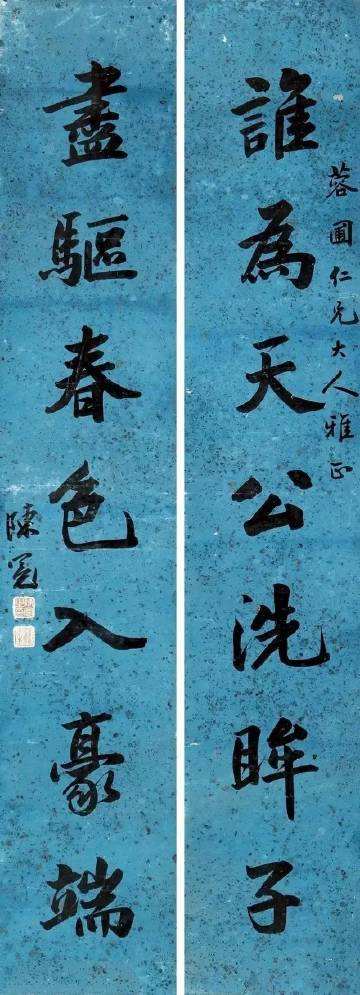 蓉圃仁兄大人雅正
誰為天公洗眸子
盡驅春色入豪端
陳冕